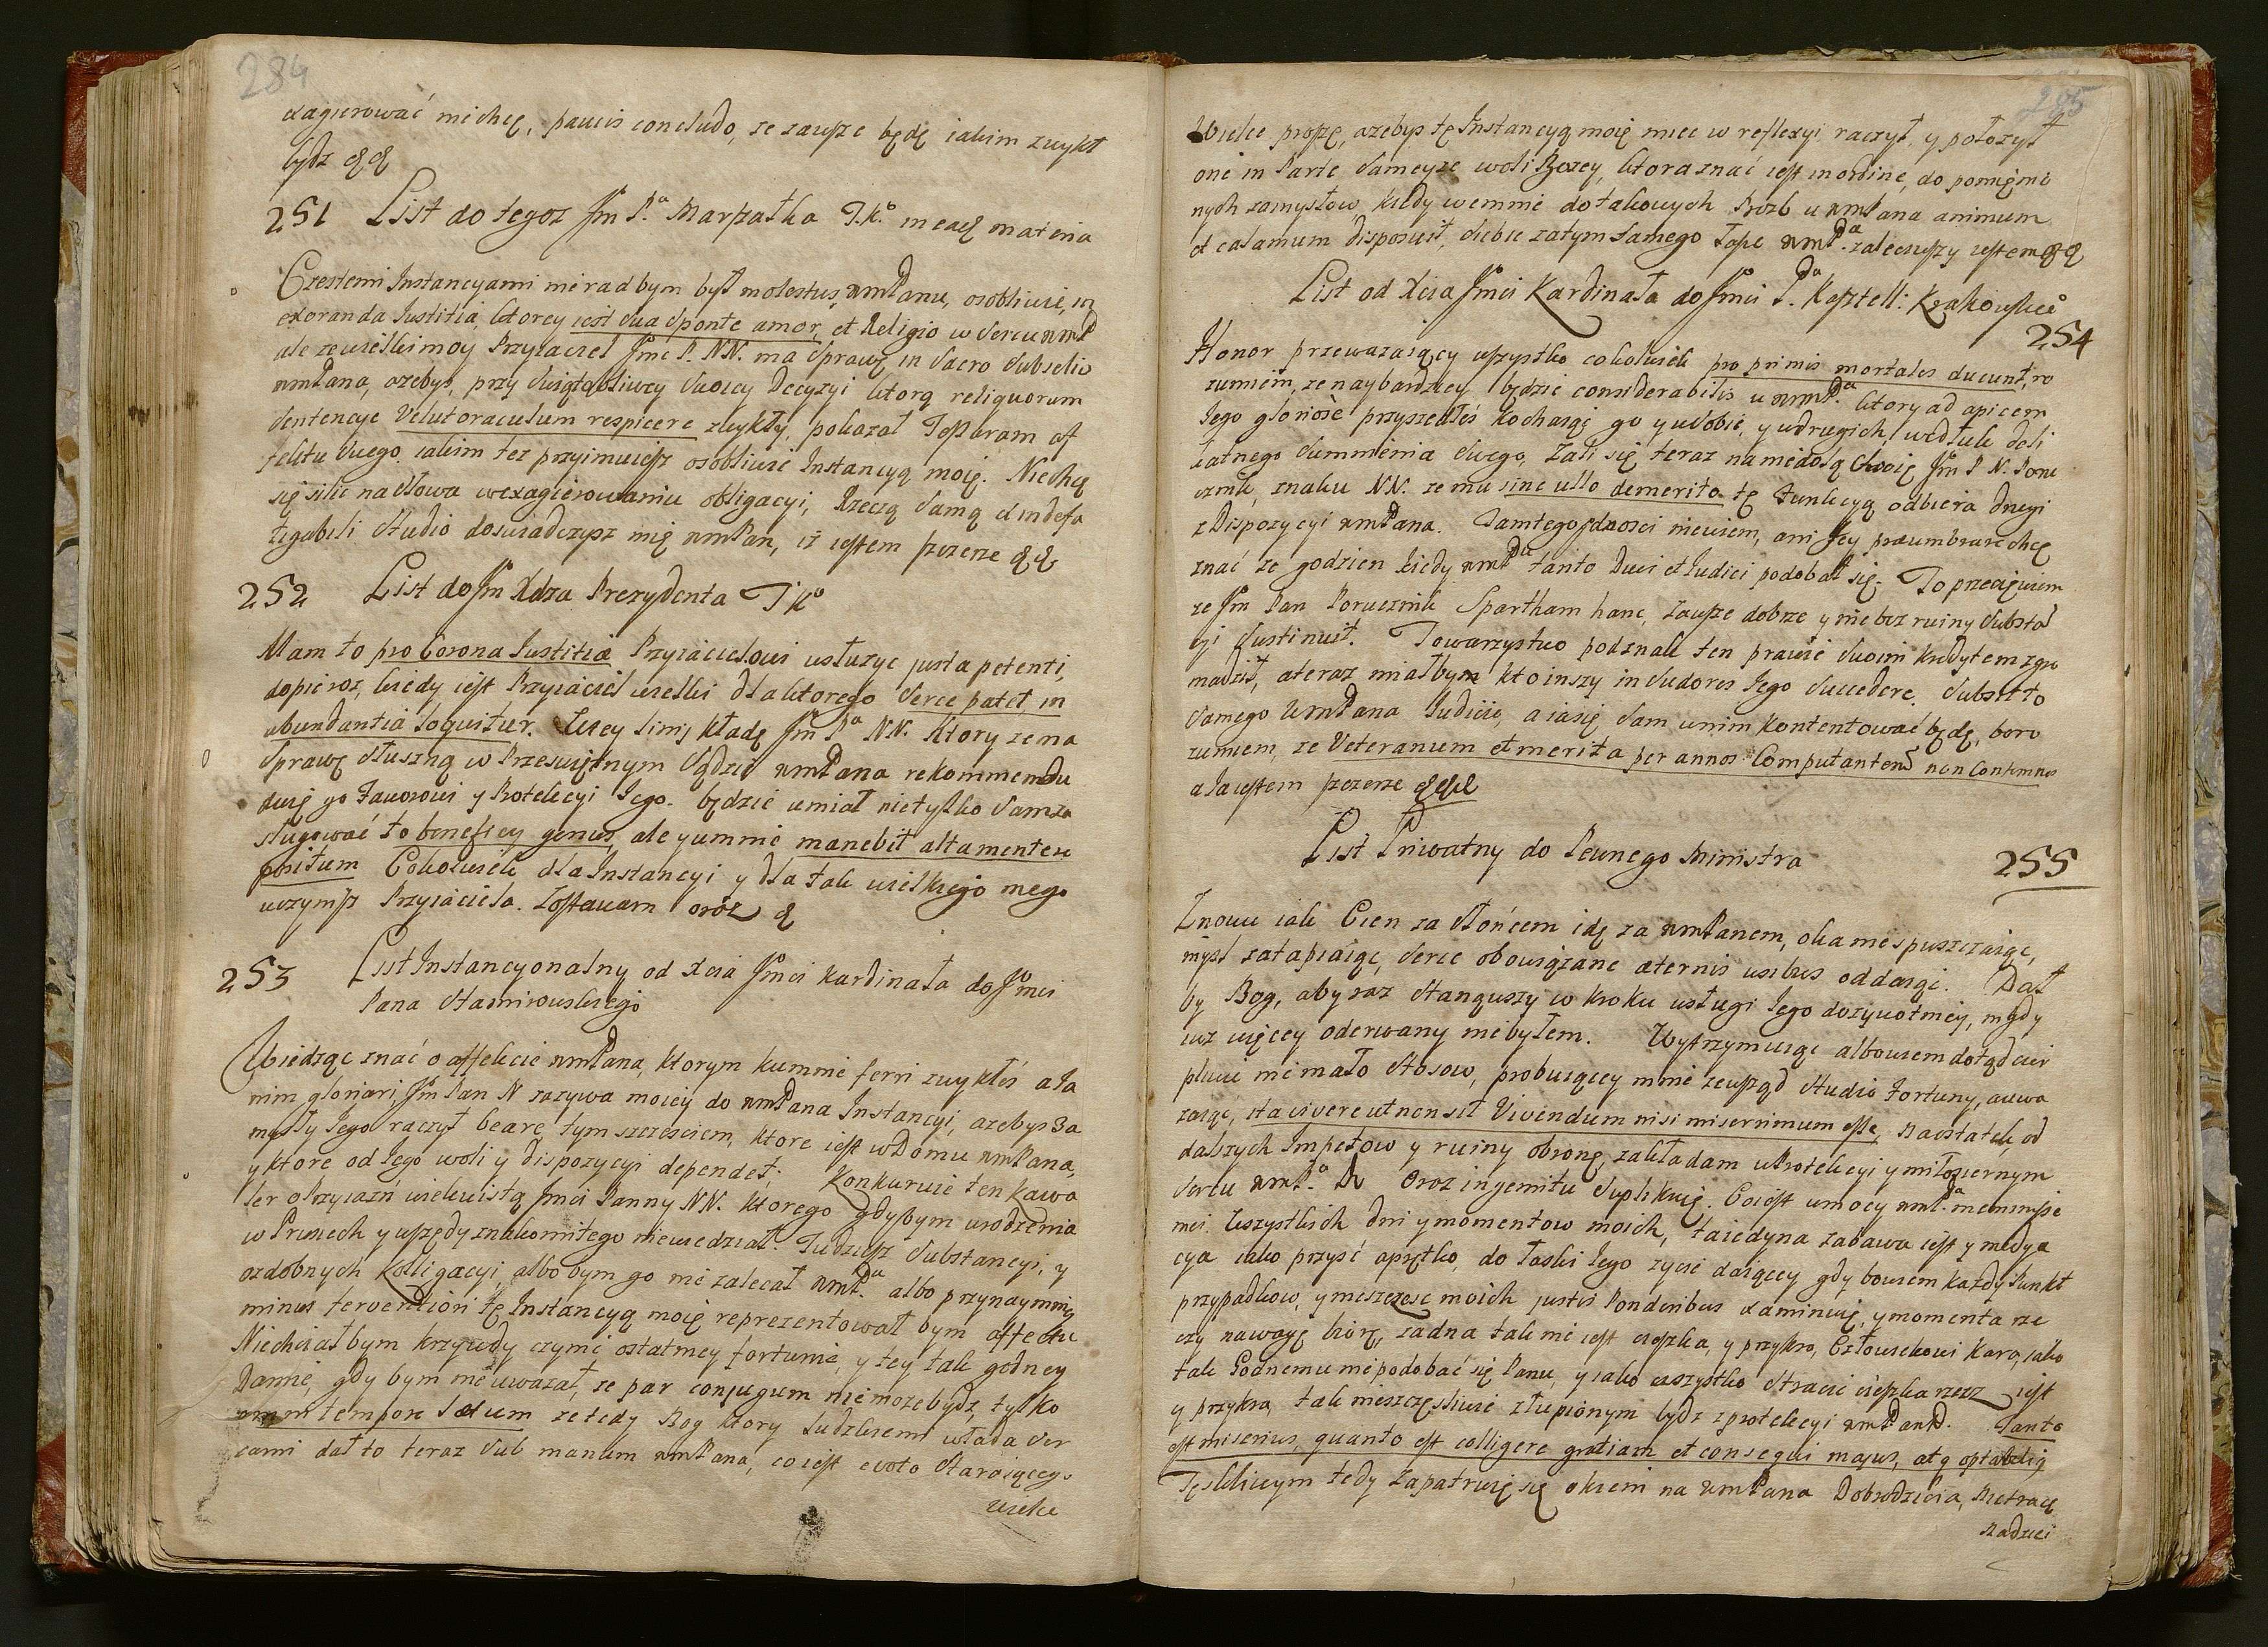 284
xagierować niechcę, paucis concludo, ze zawsze będę iakim zwykł
bydz &&
251 List do tegoz Jm P.a Marszałka T.K.o in eadem materia
Czestemi Instancyami nierad bym był molestus wmPanu, osobliwie, in
exoranda Iustitia, ktorey iest sua sponte amor, et Religio w sercu wmP
ale ze wielki moy Przyiaciel Jmc P. NN. ma sprawę in Sacro Subselio
wmPana, azebyś, przy swiątobliwey swoiey Decyzyi ktorą reliquorum
sentencye velut oraculum respicere zwykły, pokazał Topharam af
fektu swego, iakim tez przyimuiesz osobliwie Instancyą moię. Niechcę
się silic na słowa w exagierowaniu obligacyi, Rzeczą samą &indefa
tigabili studio doswiadczysz mię wmPan, iż iestem szczerze &&
252 List do Jm Xdza Prezydenta T K.o
Mam to pro Corona Iustitiæ Przyiacielowi usłuzyc justa petenti,
dopieroz, kiedy iest Przyiaciel wielki dla ktorego serce patet, in
abundantia loquitur. W tey linij kładę Jm P.a NN. Ktory ze ma
sprawę słuszną w Przeswiętnym sądzie wmPana rekommendu
duię go Faworowi y Protekcyi Jego. będzie umiał nietylko sam za
sługować to beneficy genus, ale y u mnie manebit alta mente re
positum Cokolwiek dla Instancyi y dla tak wielkiego mego
uczynisz Przyiaciela. Zostawam oraz &
253 List Instancyonalny od Xcia Jmci Kardinała do Jmci
Pana Staniwouskiego
Wiedząc znać o affekcie wmPana, ktorym kumnie ferri zwykłeś a Ja
nim gloriari, Jm Pan N zazywa moiey do wmPana Instancyi, azebyś Za
mysły Jego raczył beare, tym szczesciem, ktore iest w Domu wmPana,
y ktore od Jego woli y dispozycyi dependet; Konkuruie ten Kawa
ler o Przyiazń wiekuistą Jmci Panny NN. ktorego gdybym urodzenia
w Prusiech y wszędy znakomitego niewiedział. Tudziesz substancyi, y
ozdobnych Kolligacyi, albo bym go nie zalecał wmP.a albo przynaymniey
minus ferventiori tę Instancyą moię reprezentował bym affectu
Niechciałbym krzywdy czynić ostatniey fortunie, y tey tak godney
Damie, gdy bym nie uwazał, ze par conjugum nie moze bydz, tylko
omni tempore lætum ze tedy Bog ktory ludzkiemi włada ser
cami dał to teraz sub manum wmPana, co iest e voto staraiącego
wielce
285
Wielce proszę, azebyś tę Instancyą moię miec w reflexyi raczył, y położył
onę in Parte sameyze woli Bozey, ktora znać iest in ordine, do pomienio
nych zamysłow, kiedy wemnie do takowych Prozb u wmPana animum
et calamum disposuit, siebie zatym samego łasce wmP.a zaleciwszy iestem &&
List od Xcia Jmci Kardinała do Jmci P.a Kasztell: Krakowskie
254
Honor przewazaiący wszystko cokolwiek pro primis mortales ducunt, ro
zumiem, ze naybardziey będzie considerabilis u wmP.a ktory ad apicem
Jego gloriose przyszedłeś kochaiąc go y w sobie, y w drugich, wedłuk deli
katnego summienia swego, Zali się teraz na niedolą swoię Jm P N. Poru
cznik, znaku NN. ze mu sine ullo demerito tę Funkcyą odbiera drugi
z Dispozycyi wmPana. Tamtego zdatności niewiem, ani Jey præumbrare chcę
znać ze godzien kiedy wmP.a tanto Duci et Iudici podobał się. To przeciewiem
ze Jm Pan Porucznik Spartham hanc, zawsze dobrze y nie bez ruiny Substan
cyi sustinuit. Towarzystwo pod znak ten prawie swoim kredytem zgro
madził, a teraz miałbym kto inszy in sudores Jego succedere. Subsit to
samego wmPana Iudicio, a ia się sam w nim kontentować będę, bo ro
zumiem, ze Veteranum et merita per annos Computantem non Contemnes
a Ia iestem szczerze &&&
List Priwatny do Pewnego Ministra
255
Znowu iak Cien za słońcem idę za wmPanem, oka nie spuszczaiąc,
mysl zatapiaiąc, serce obowiązane æternis usibus oddaiąc. Dał
by Bog, aby raz stanąwszy w kroku usługi Jego dozywotniey, nigdy
iuz więcey oderwany niebyłem. Wytrzymuiąc albowiem dotąd cier
pliwie niemało stosow, probuiącey mnie zewsząd studio Fortuny, auwa
zaiąc, ita vivere ut non sit Vivendum nisi miserrimum esse, naostatek, od
dalszych Impetow y ruiny obronę, zakładam w Protekcyi y miłosiernym
sercu wmP.a Oraz ingemitu suplikuię. Co iest w mocy wmP.a memmisse
mei. Wszystkich dni y momentow moich, ta iedyna zabawa iest y medyta
cya iako przyść aprętko, do łaski Jego zycie daiącey gdy bowiem kazdy Punkt
przypadkow, y nieszczesc moich justis Ponderibus examinuię, y momenta rze
czy na wagę biorę, zadna tak nie iest cięszka, y przykra, Człowiekowi Kara, iako
tak Godnemu nie podobać się Panu, y iako wszystko stracic cięszka rzecz iest
y przykra, tak nieszczęsliwie złupionym bydz z protekcyi wmPana. Tanto
est miserius, quanto est colligere gratiam et consequi majus, atq optabilig
Tęskliwym tedy zapatruię się okiem na wmPana Dobrodzieia, nietracę
nadziei